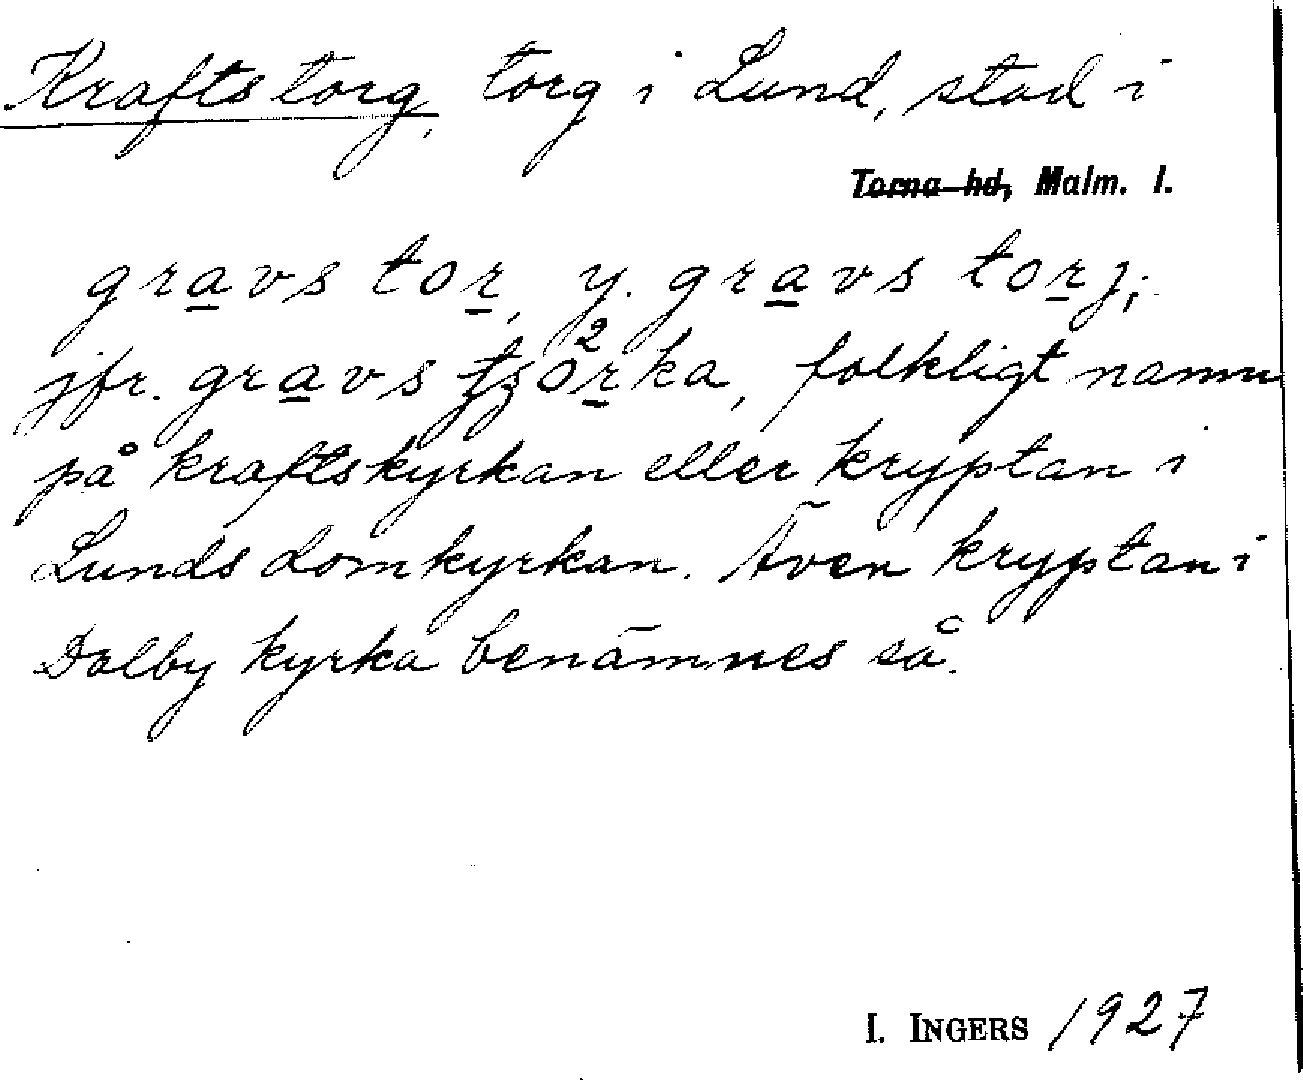 Krafts torg, torg i Lund, stad i
Torna hd, Malm. l.
gravs tor, y. gravs torj;
jfr. gravs kyrka, folkligt namn
på kraftskyrkan eller kryptan i
Lunds domkyrkan. Även kryptan i
Dalby kyrka benämnes så.
I. INGERS 1927